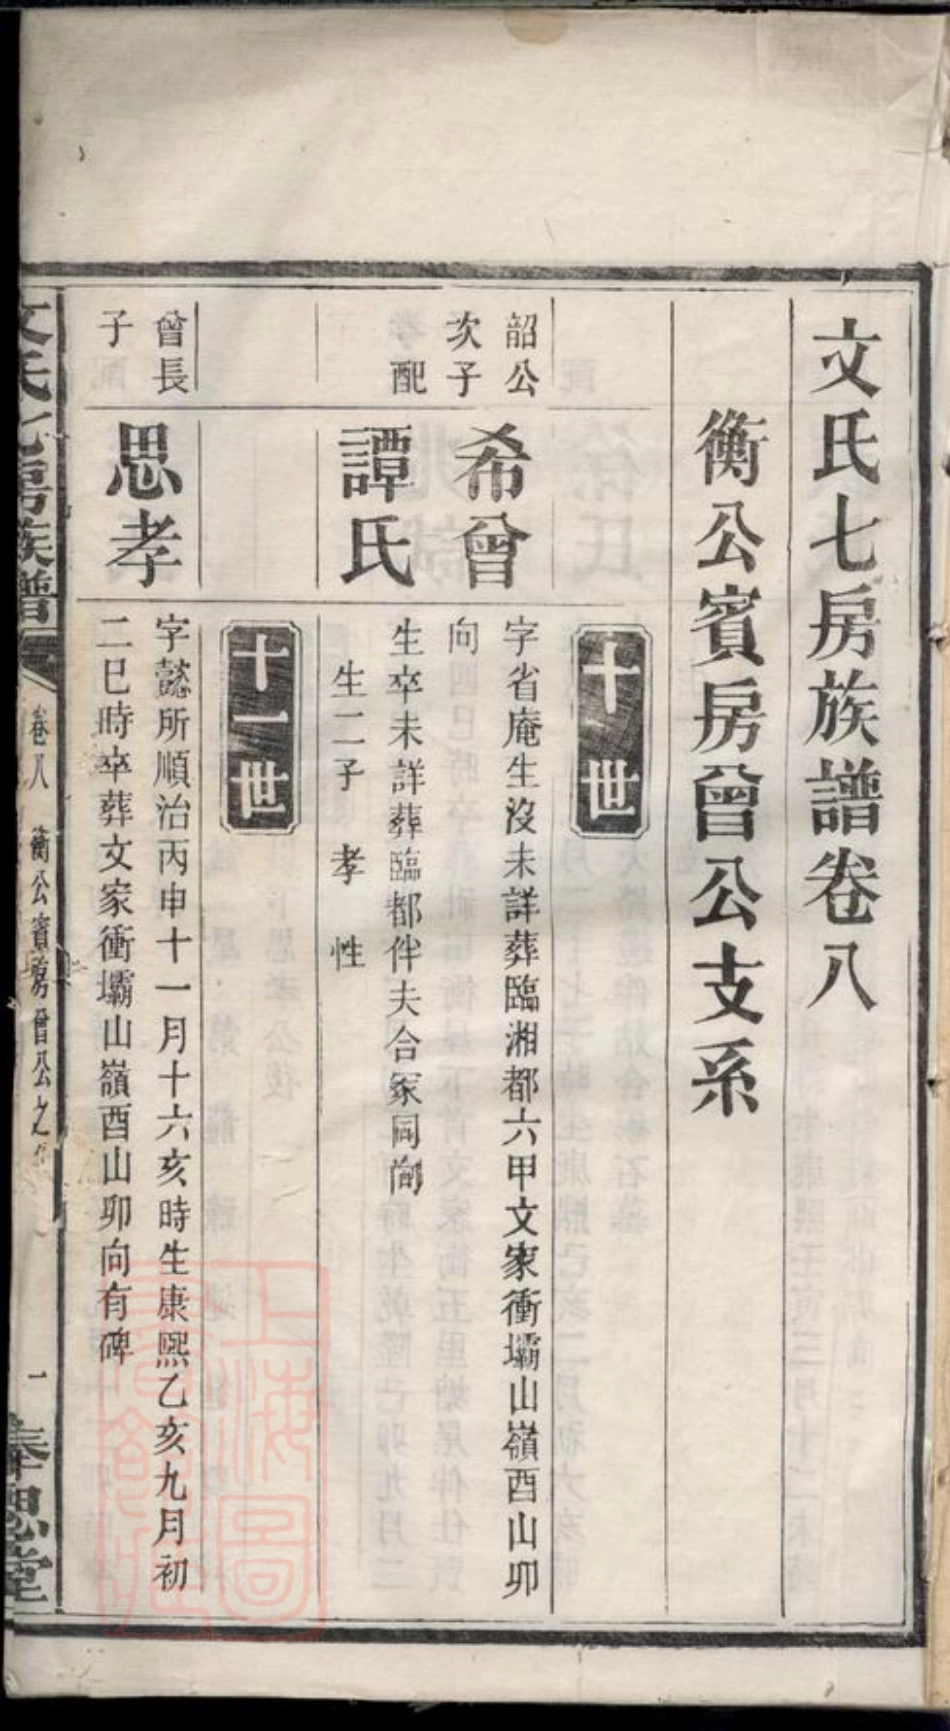 文氏七房族譜卷八
衡公賓房曾公支系
十世
韶公
次子
希曾
字省庵生沒未詳葬臨湘都六甲文家衝壩山嶺酉山卯
向
配
譚氏
生卒未詳葬臨都伴夫合冢同向
生二子 孝 性
十一世
曾長
子
思孝
字懿所順治丙申十一月十六亥時生康熙乙亥九月初
二巳時卒葬文家衝壩山嶺酉山卯向有碑
文氏七房族譜
卷八
衡公賓房曾公支系
一
奉思堂